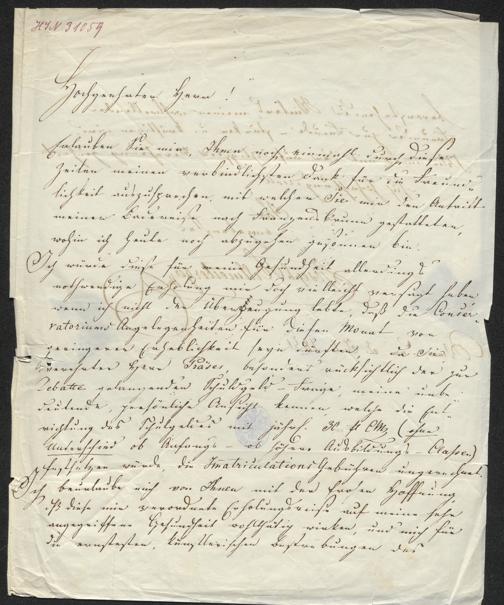 HIN 31059
Hochgeehrter Herr!
Erlauben Sie mir, Ihnen noch einmahl durch diese
Zeilen meinen verbindlichsten Dank für die Freund-
lichkeit auszusprechen, mit welcher Sie mir den Antritt
meiner Badereise nach Franzensbrunn gestatteten,
wohin ich heute noch abzugehen gesonnen bin.
Ich würde diese für meine Gesundheit allerdings
nothwendige Erholung mir doch vielleicht versagt haben
wenn ich nicht der Überzeugung lebte, daß die Conser-
vatoriums Angelegenheiten für diesen Monat von
geringerer Erheblichkeit seyn dürften, da Sie
verehrter Herr Präses, besonders rücksichtlich der zur
Debatte gelangenden Schulgeld Frage, meine unbe-
deutende, persönliche Ansicht kennen, welche die Ent-
richtung des Schulgeldes mit jährl. 30 fl CMz (ohne
Unterschied ob Anfangs- oder höhere Ausbildungs-Classen)
festsetzen würde, die Immatriculations Gebühren ungerechnet.
Ich beurlaube mich von Ihnen mit der frohen Hoffnung,
daß diese mir verordnete Erholungsreise auf meine sehr
angegriffene Gesundheit wohlthätig wirken, und mich für
die ernstesten, künstlerischen Bestrebungen des